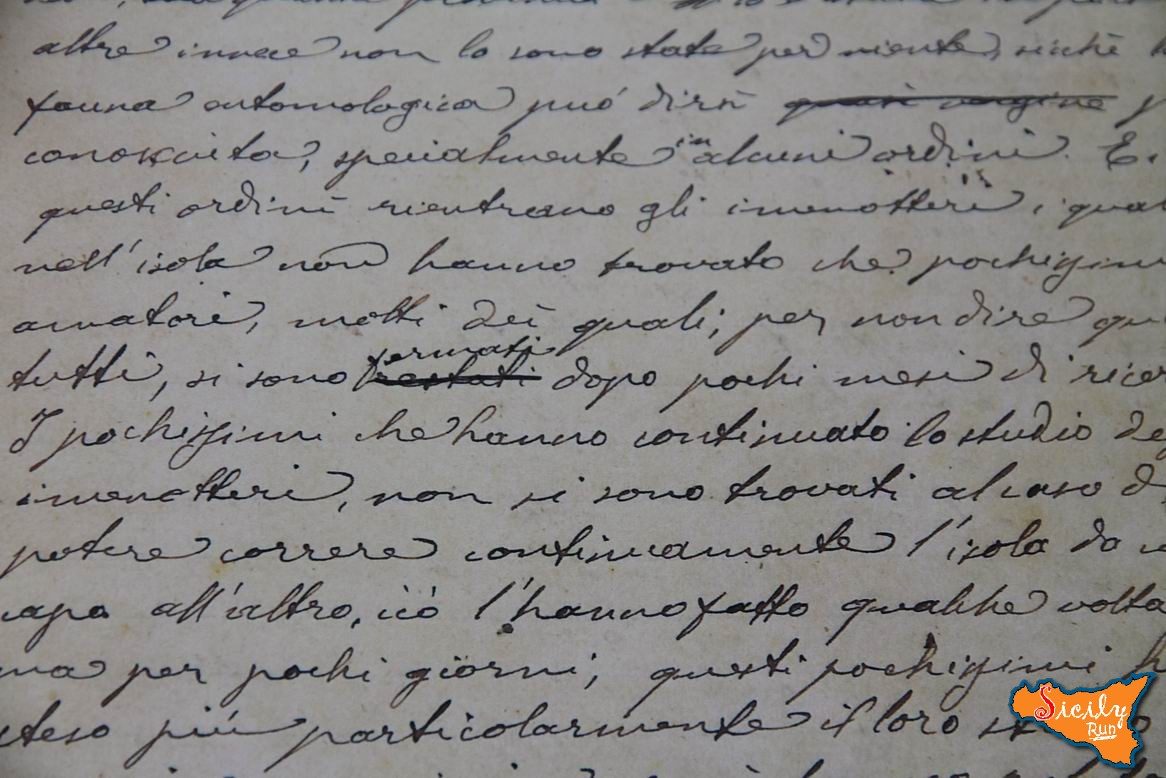 altre invece non lo sono state per niente, sicchè
fauna entomologica può dirsi quasi vergine
conosciuta, specialmente in alcuni ordini. E.
questi ordini rientrano gli imenotteri, i qua
nell'isola non hanno trovato che pochissim
amatori, molti dei quali, per non dire qu
fermati
tutti, si sono restati dopo pochi mesi di ricer
I pochissimi che hanno continuato lo studio de
imenotteri, non si sono trovati al caso d
potere correre continuamente l'isola da
capo all'altro, ciò l'hanno fatto qualche volta
ma per pochi giorni; questi pochissimi h
steso più particolarmente il loro
Sicily
Run